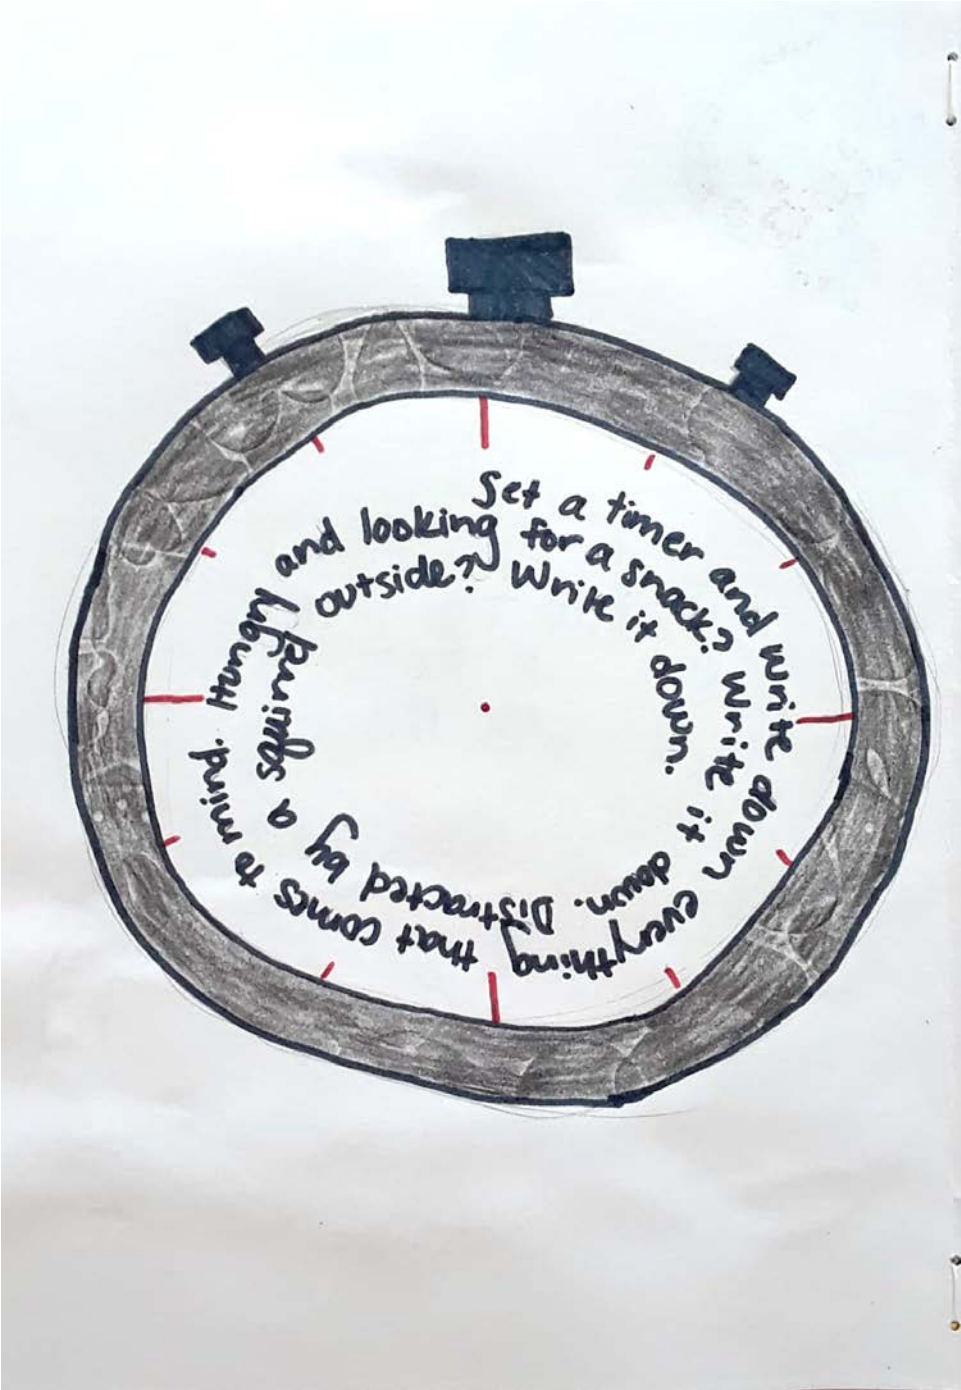 Set a timer and write down everything that comes to mind. Hungry and looking for a snack? Write it down. Distracted by a squirrel outside? Write it down.